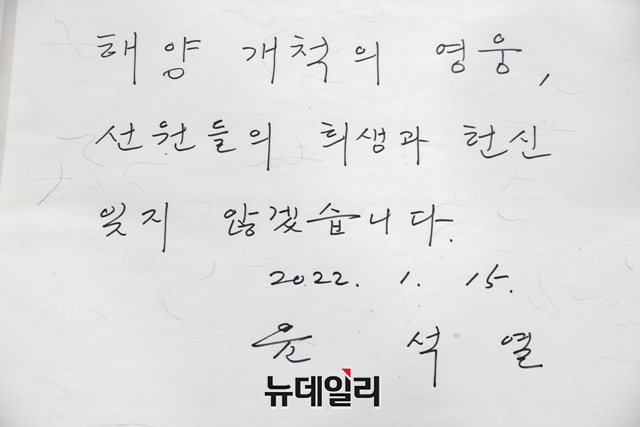 해양 개척의 영웅,
선원들의 희생과 헌신
잊지 않겠습니다.
2022. 1. 15.
윤 석 열
뉴데일리